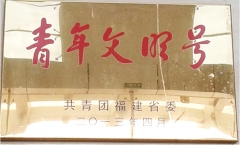 青年文明号
共青团福建省委
二〇一三年四月